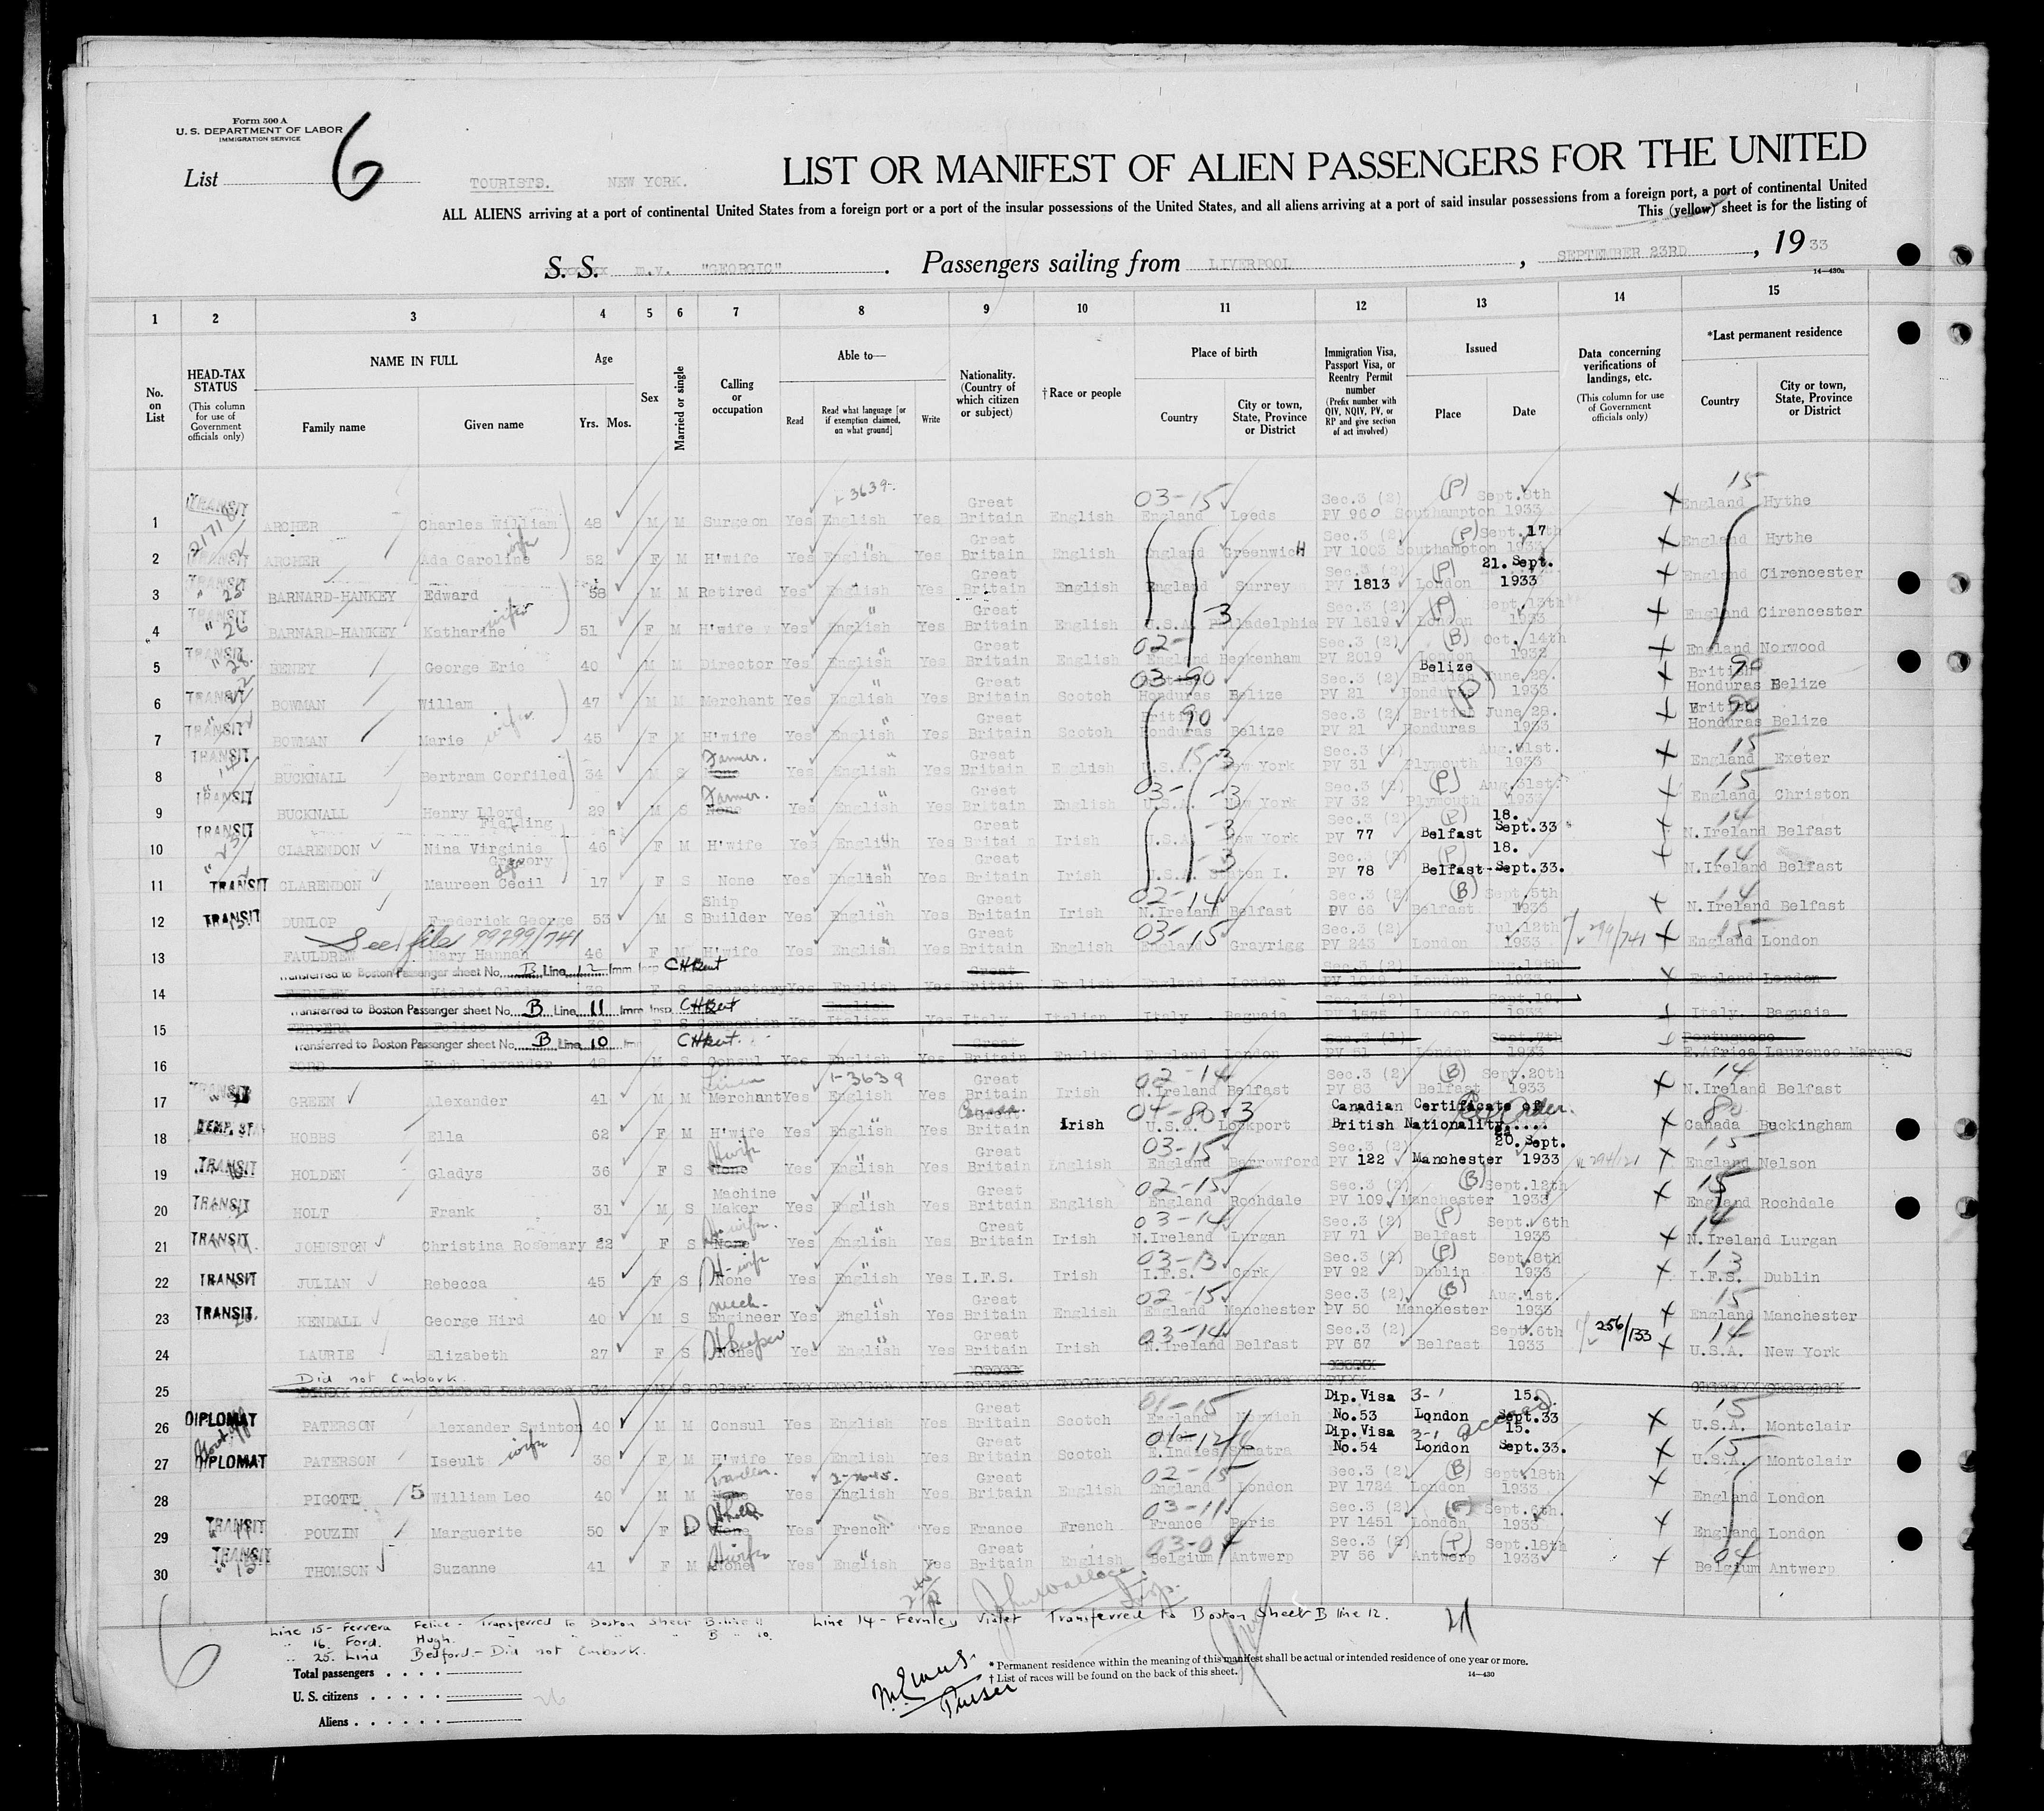 Form 500 A
U. S. DEPARTMENT OF LABOR
IMMIGRATION SERVICE
List 6
TOURISTS. NEW YORK.
LIST OR MANIFEST OF ALIEN PASSENGERS FOR THE UNITED
ALL ALIENS arriving at a port of continental United States from a foreign port or a port of the insular possessions of the United States, and all aliens arriving at a port of said insular possessions from a foreign port, a port of continental United
This (yellow) sheet is for the listing of
S. S. m.v. "GEORGIC" . Passengers sailing from LIVERPOOL , SEPTEMBER 23RD , 19 33
14—430a
1 2 3 4 5 6 7 8 9 10 11 12 13 14 15
No. on List
HEAD-TAX STATUS (This column for use of Government officials only)
NAME IN FULL
Family name Given name
Age
Yrs. Mos.
Sex
Married or single
Calling or occupation
Able to—
Read Read what language [or if exemption claimed, on what ground] Write
Nationality. (Country of which citizen or subject)
†Race or people
Place of birth
Country City or town, State, Province or District
Immigration Visa, Passport Visa, or Reentry Permit number (Prefix number with QIV, NQIV, PV, or RP and give section of act involved)
Issued
Place Date
Data concerning verifications of landings, etc. (This column for use of Government officials only)
*Last permanent residence
Country City or town, State, Province or District
1 TRANSIT ARCHER Charles William 48 M M Surgeon Yes English Yes Great Britain English 03-15 England Leeds Sec.3 (2) PV 960 Southampton (P) Sept.8th 1933 X England 15 Hythe
2 TRANSIT ARCHER Ada Caroline wife 52 F M H'wife Yes English Yes Great Britain English England Greenwich Sec.3 (2) PV 1003 Southampton (P) Sept.17th 1933 X England Hythe
3 TRANSIT BARNARD-HANKEY Edward 58 M M Retired Yes English Yes Great Britain English England Surrey Sec.3 (2) PV 1813 London (P) 21. Sept. 1933 X England Cirencester
4 TRANSIT BARNARD-HANKEY Katharine wife 51 F M H'wife Yes English Yes Great Britain English U.S.A. Philadelphia 3 Sec.3 (2) PV 1619 London (P) Sept.13th 1933 X England Cirencester
5 TRANSIT BENEY George Eric 40 M M Director Yes English Yes Great Britain English 02- England Beckenham Sec.3 (2) PV 2019 London (B) Oct.14th 1932 X England Norwood
6 TRANSIT BOWMAN Willam 47 M M Merchant Yes English Yes Great Britain Scotch 03-90 Honduras Belize Sec.3 (2) PV 21 Belize British Honduras June 28. 1933 X British Honduras 90 Belize
7 TRANSIT BOWMAN Marie wife 45 F M H'wife Yes English Yes Great Britain Scotch British Honduras 90 Belize Sec.3 (2) PV 21 British Honduras (P) June 28. 1933 X British Honduras 90 Belize
8 TRANSIT BUCKNALL Bertram Corfiled 34 M S Farmer. Yes English Yes Great Britain English U.S.A. New York 3 Sec.3 (2) PV 31 Plymouth Aug.31st. 1933 X England 15 Exeter
9 TRANSIT BUCKNALL Henry Lloyd 29 M S Farmer. None Yes English Yes Great Britain English 03- -3 U.S.A. New York Sec.3 (2) PV 32 Plymouth (P) Aug.31st. 1933 X England 15 Christon
10 TRANSIT CLARENDON Nina Virginis Fielding 46 F M H'wife Yes English Yes Great Britain Irish U.S.A. New York -3 Sec.3 (2) PV 77 Belfast (P) 18. Sept.33 X N.Ireland 14 Belfast
11 TRANSIT CLARENDON Maureen Cecil Gregory 17 F S None Yes English Yes Great Britain Irish U.S.A. Staten I. -3 Sec.3 (2) PV 78 Belfast (P) 18. Sept.33. X N.Ireland 14 Belfast
12 TRANSIT DUNLOP Frederick George 53 M S Ship Builder Yes English Yes Great Britain Irish 02-14 N.Ireland Belfast Sec.3 (2) PV 66 Belfast (B) Sept.5th 1933 X N.Ireland 14 Belfast
See file 99299/741
13 FAULDREW Mary Hannah 46 F M H'wife Yes English Yes Great Britain English 03-15 England Grayrigg Sec.3 (2) PV 243 London Jul.12th 1933 299/741 X England 15 London
Transferred to Boston Passenger sheet No. B Line 12 Imm Insp CHKent
14 FERNLEY Violet Gladys F S Secretary Yes English Yes Great Britain English England London Sec.3 (2) London Aug.19th 1933 X England London
Transferred to Boston Passenger sheet No. B Line 11 Imm Insp CHKent
15 FERRERA Yes Italian Yes Italy Italian Italy Baguaia PV 1575 London Sept.19. 1933 X Italy Baguaia
Transferred to Boston Passenger sheet No. B Line 10 CHKent.
16 FORD Hugh Alexander 48 M S Consul Yes English Yes Great Britain English England London Sec.3 (1) PV 51 London Sept.7th 1933 Portuguese E.Africa Laurenco Marques
17 TRANSIT GREEN Alexander 41 M M Linen Merchant Yes English 1-3639 Yes Great Britain Irish 02-14 N.Ireland Belfast Sec.3 (2) PV 83 Belfast (B) Sept.20th 1933 X N.Ireland 14 Belfast
18 TEMP. STAY HOBBS Ella 62 F M H'wife Yes English Yes Canada. Great Britain Irish 04-80 3 U.S.A. Lockport Canadian Certificate of British Nationality..... X Canada 80 Buckingham
19 TRANSIT HOLDEN Gladys 36 F S H'wife None Yes English Yes Great Britain English 03-15 England Barrowford Sec.3 (2) PV 122 Manchester 20. Sept. 1933 294/121 X England 15 Nelson
20 TRANSIT HOLT Frank 31 M S Machine Maker Yes English Yes Great Britain English 02-15 England Rochdale Sec.3 (2) PV 109 Manchester (B) Sept.12th 1933 X England 15 Rochdale
21 TRANSIT JOHNSTON Christina Rosemary 22 F S H-wife. None Yes English Yes Great Britain Irish 03-14 N.Ireland Lurgan Sec.3 (2) PV 71 Belfast (P) Sept.6th 1933 X N.Ireland 14 Lurgan
22 TRANSIT JULIAN Rebecca 45 F S H-wife None Yes English Yes I.F.S. Irish 03-13 I.F.S. Cork Sec.3 (2) PV 92 Dublin (P) Sept.8th 1933 X I.F.S. 13 Dublin
23 TRANSIT KENDALL George Hird 40 M S Mech. Engineer Yes English Yes Great Britain English 02-15 England Manchester Sec.3 (2) PV 50 Manchester (B) Aug.1st. 1933 X England 15 Manchester
24 LAURIE Elizabeth 27 F S H keeper None Yes English Yes Great Britain Irish 03-14 N.Ireland Belfast Sec.3 (2) PV 67 Belfast Sept.6th 1933 256/133 X U.S.A. 14 New York
25 Did not Embark.
26 DIPLOMAT PATERSON Alexander Swinton 40 M M Consul Yes English Yes Great Britain Scotch 01-15 England Norwich Dip. Visa No.53 3-1 London 15. Sept.33 X U.S.A. 15 Montclair
27 DIPLOMAT PATERSON Iseult wife 38 F M H'wife Yes English Yes Great Britain Scotch 01-12 E.Indies Sumatra Dip. Visa No.54 3-1 London 15. Sept.33. X U.S.A. 15 Montclair
28 PIGOTT 5 William Leo 40 M M Yes English Yes Great Britain English 02-15 England London Sec.3 (2) PV 1724 London (B) Sept.18th 1933 X England London
29 TRANSIT POUZIN Marguerite 50 F D None Yes French Yes France French 03-11 France Paris Sec.3 (2) PV 1451 London Sept.6th. 1933 X England London
30 TRANSIT THOMSON Suzanne 41 F M H'wife None Yes English Yes Great Britain English 03-04 Belgium Antwerp Sec.3 (2) PV 56 Antwerp Sept.18th 1933 X Belgium 04 Antwerp
John Wallace Insp.
Line 15 - Ferrera Felice - Transferred to Boston Sheet B line 11 Line 14 - Fernley Violet Transferred to Boston Sheet B line 12.
" 16. Ford. Hugh. " " " " B " 10.
" 25. Lind Bedford. - Did not Embark.
Total passengers
U. S. citizens
Aliens
Purser
* Permanent residence within the meaning of this manifest shall be actual or intended residence of one year or more.
† List of races will be found on the back of this sheet.
14—430